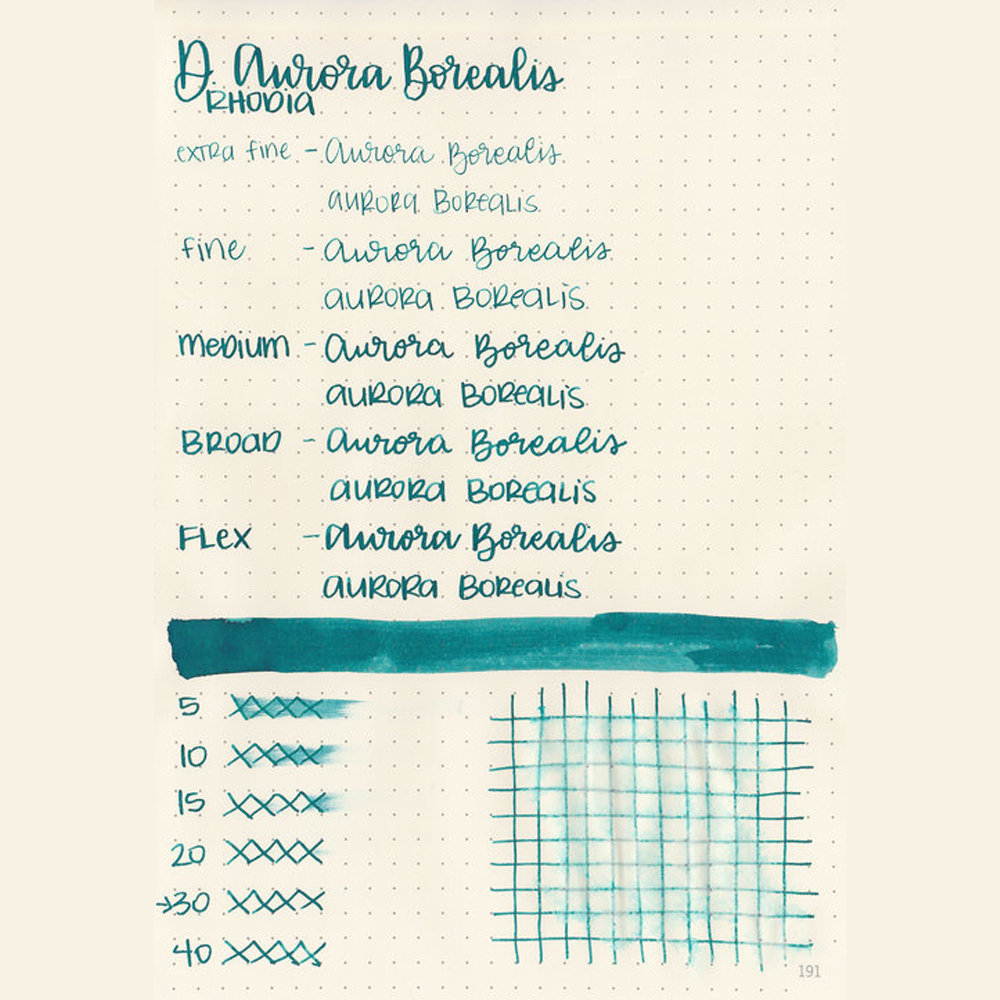 D. Aurora Borealis
RHODIA
extra fine - Aurora Borealis
aurora Borealis
fine - Aurora Borealis
aurora Borealis
medium - Aurora Borealis
aurora Borealis
Broad - Aurora Borealis
aurora Borealis
Flex - Aurora Borealis
aurora Borealis
5 XXXX
10 XXXX
15 XXXX
20 XXXX
→30 XXXX
40 XXXX
191